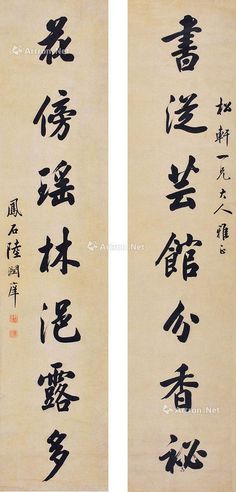 松軒一兄大人雅正
書從芸館分香祕
花傍瑤林浥露多
鳳石陸潤庠
Artron.Net